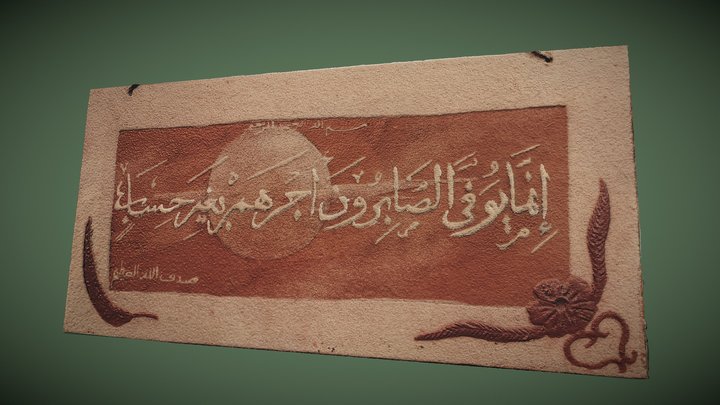 بسم الله الرحمن الرحيم
إنما يوفى الصابرون أجرهم بغير حساب
صدق الله العظيم